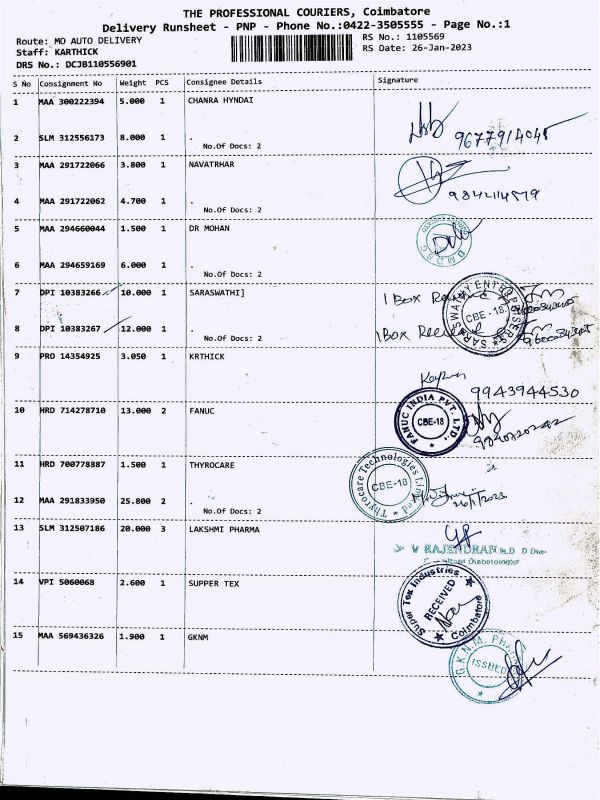 THE PROFESSIONAL COURIERS, Coimbatore
Delivery Runsheet - PNP - Phone No.:0422-3505555 - Page No.:1
Route: MO AUTO DELIVERY
Staff: KARTHICK
DRS No.: DCJB110556901
RS No.: 1105569
RS Date: 26-Jan-2023
S No Consignment No Weight PCS Consignee Details Signature
1 MAA 300222394 5.000 1 CHANRA HYNDAI
2 SLM 312556173 8.000 1 .
No.Of Docs: 2
9677914045
3 MAA 291722066 3.800 1 NAVATRHAR
4 MAA 291722062 4.700 1 .
No.Of Docs: 2
5 MAA 294660044 1.500 1 DR MOHAN
D M D S C
6 MAA 294659169 6.000 1 .
No.Of Docs: 2
7 DPI 10383266 10.000 1 SARASWATHI]
1 Box
SARASWATHY ENTERPRISERS
CBE - 18
8 DPI 10383267 12.000 1 .
1 Box
9 PRO 14354925 3.050 1 KRTHICK
9943944530
10 HRD 714278710 13.000 2 FANUC
FANUC INDIA PVT. LTD.,
CBE-18
11 HRD 700778887 1.500 1 THYROCARE
Thyrocare Technologies Limited
CBE-18
12 MAA 291833950 25.800 2 .
No.Of Docs: 2
26/1/2023
13 SLM 312507186 20.000 3 LAKSHMI PHARMA
V RAJENDRAN M.D
14 VPI 5060068 2.600 1 SUPPER TEX
Super Tex Industries
RECEIVED
Coimbatore
15 MAA 569436326 1.900 1 GKNM
G.K.N.M.
ISSUED